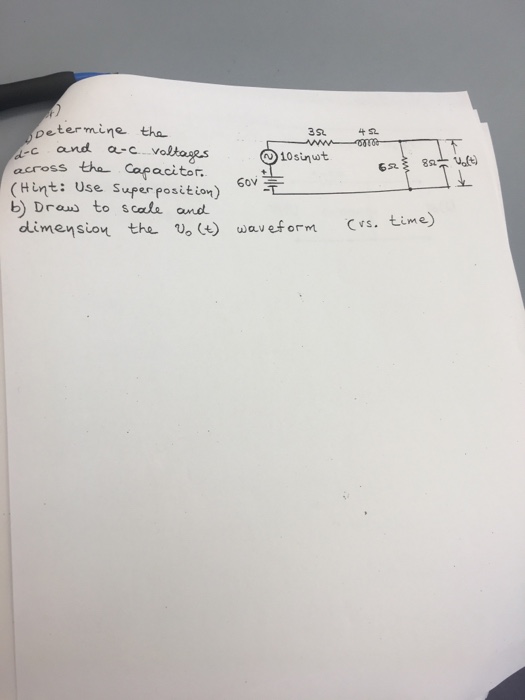 Determine the
d-c and a-c voltages
across the capacitor.
(Hint: Use Superposition)
b) Draw to scale and
dimension the v₀(t) waveform (vs. time)
3Ω 4Ω
10sinωt
6Ω 8Ω v₀(t)
+
60V